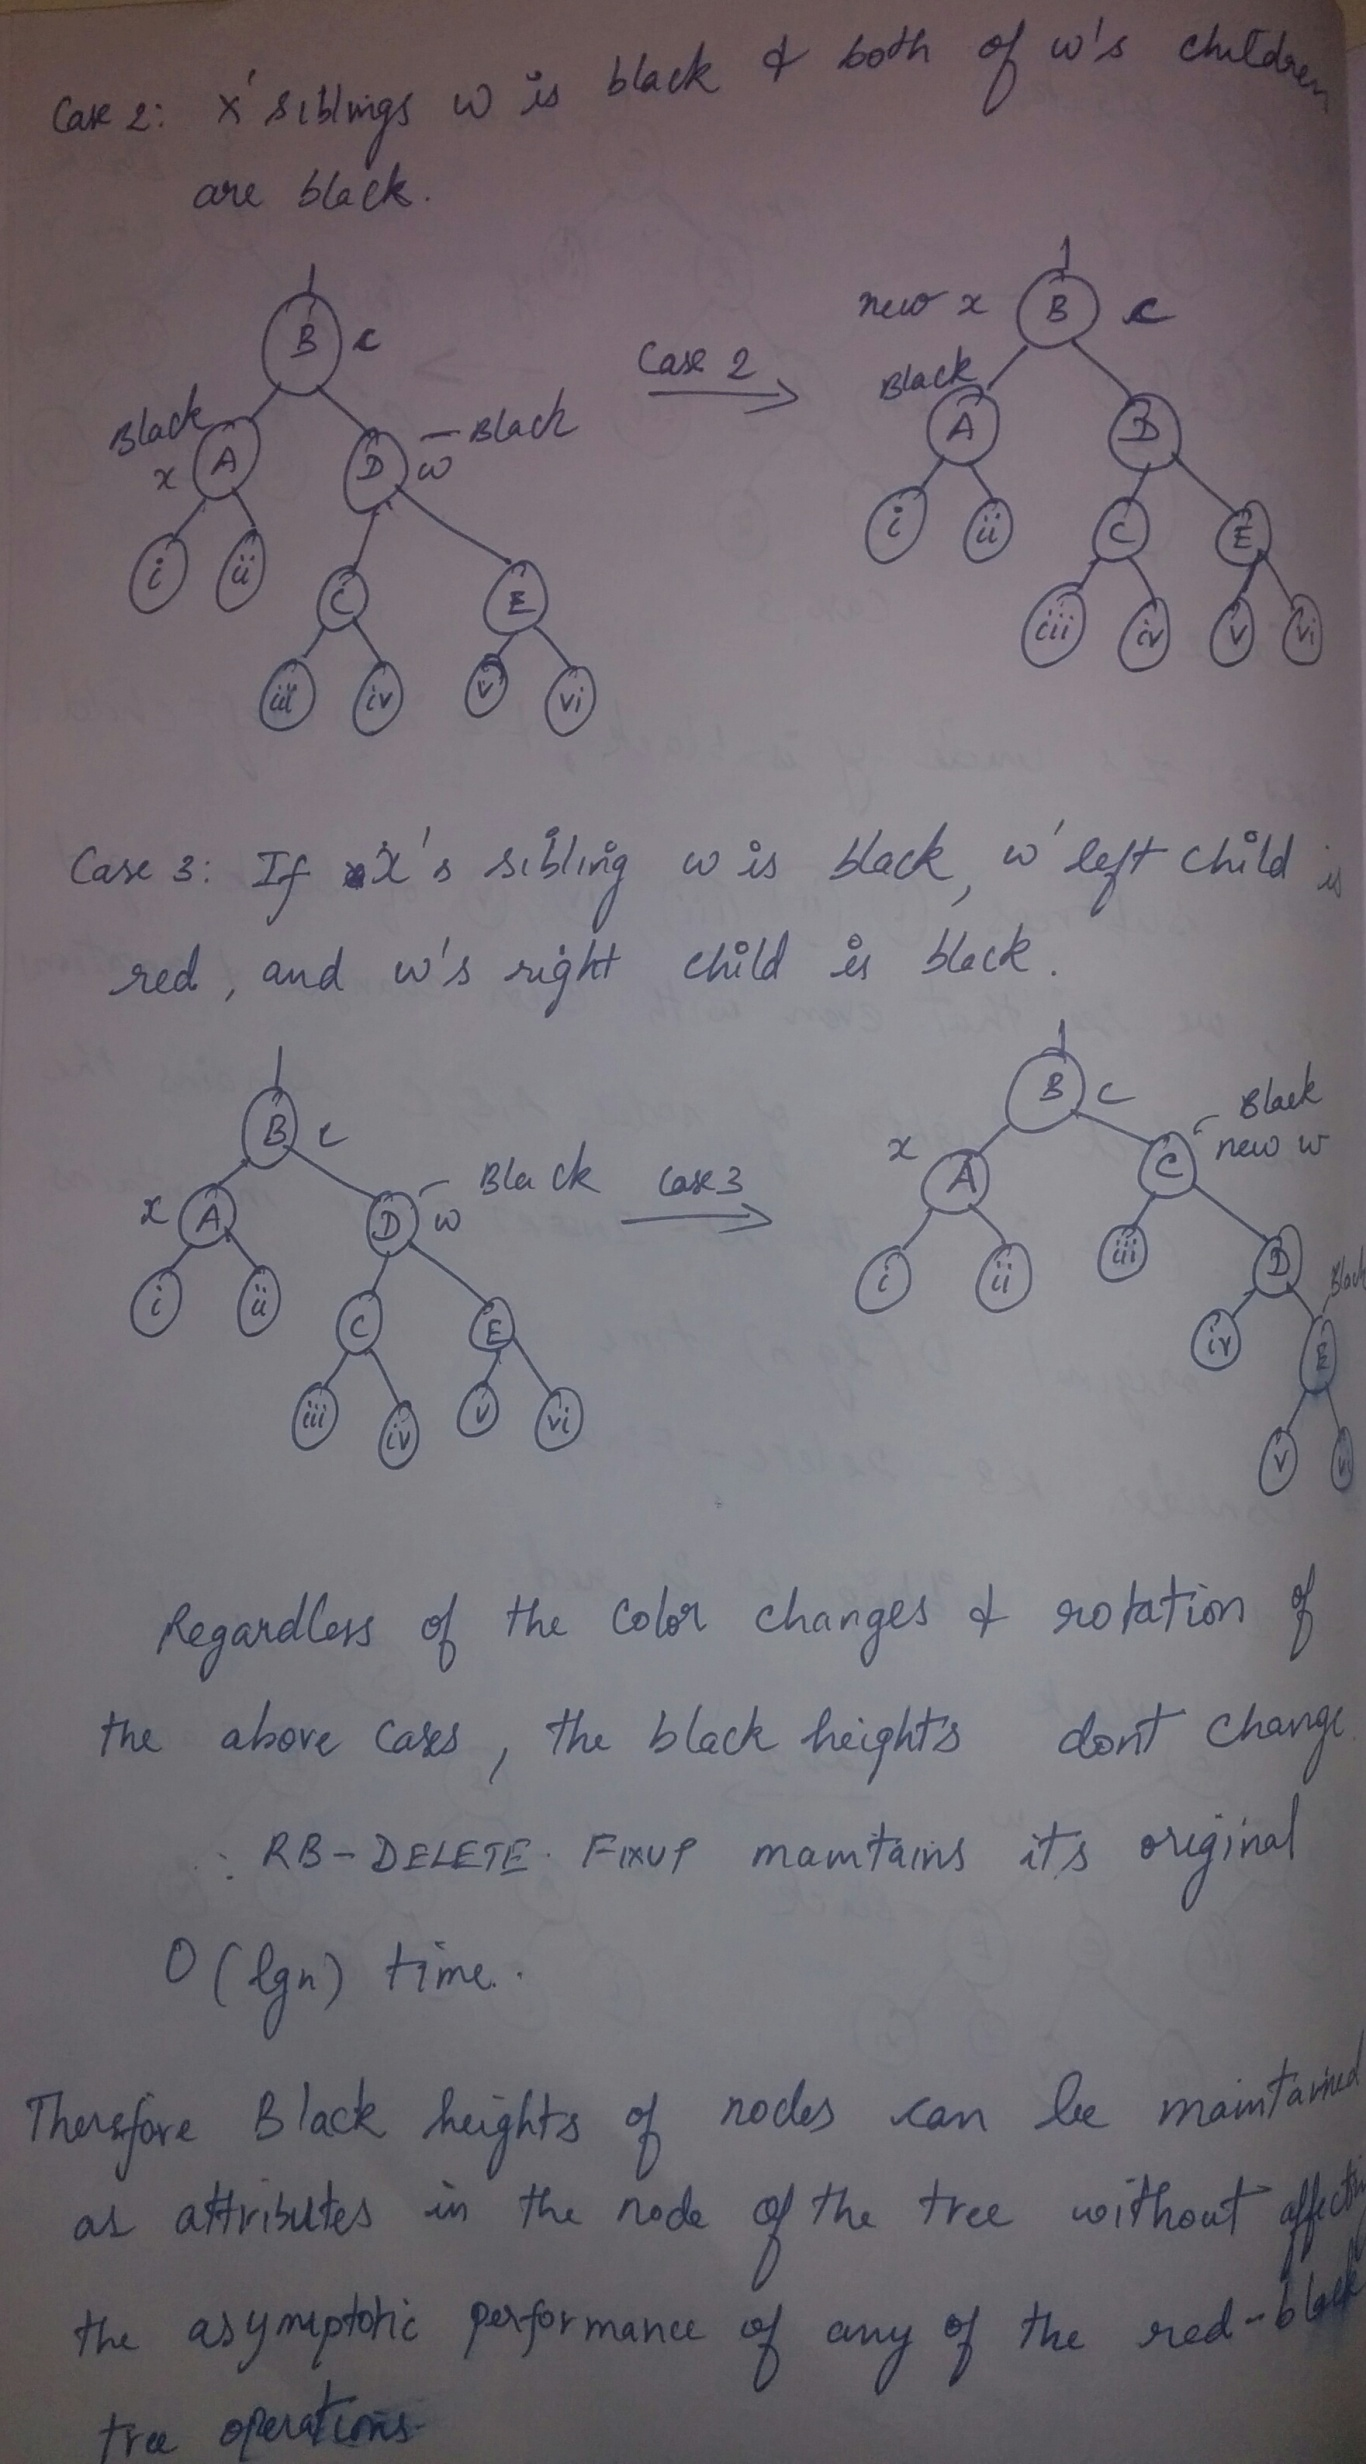 Case 2: x' siblings w is black & both of w's children
are black.
B c
Black
x A
D w
– Black
i ii
C E
iii iv v vi
Case 2
new x B c
Black
A D
i ii C E
iii iv v vi
Case 3: If x's sibling w is black, w' left child is
red, and w's right child is black.
B c
x A D w
Black
i ii C E
iii iv v vi
Case 3
B c
x A C
Black
new w
i ii iii D
Black
iv E
v vi
Regardless of the color changes & rotation of
the above cases, the black heights dont change.
∴ RB-DELETE-FIXUP maintains its original
O(lgn) time.
Therefore Black heights of nodes can be maintained
as attributes in the node of the tree without affecting
the asymptotic performance of any of the red-black
tree operations.